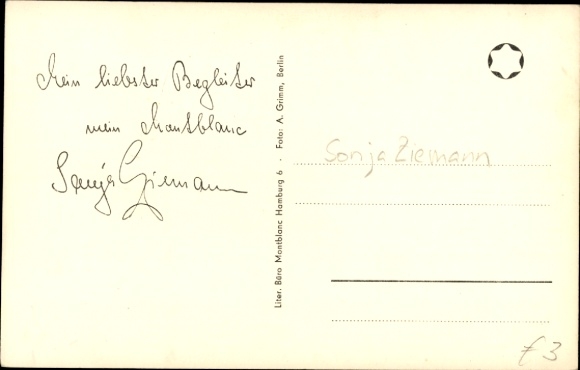 Mein liebster Begleiter
mein Montblanc
Sonja Ziemann
Liter. Büro Montblanc Hamburg 6 · Foto: A. Grimm, Berlin
Sonja Ziemann
£3